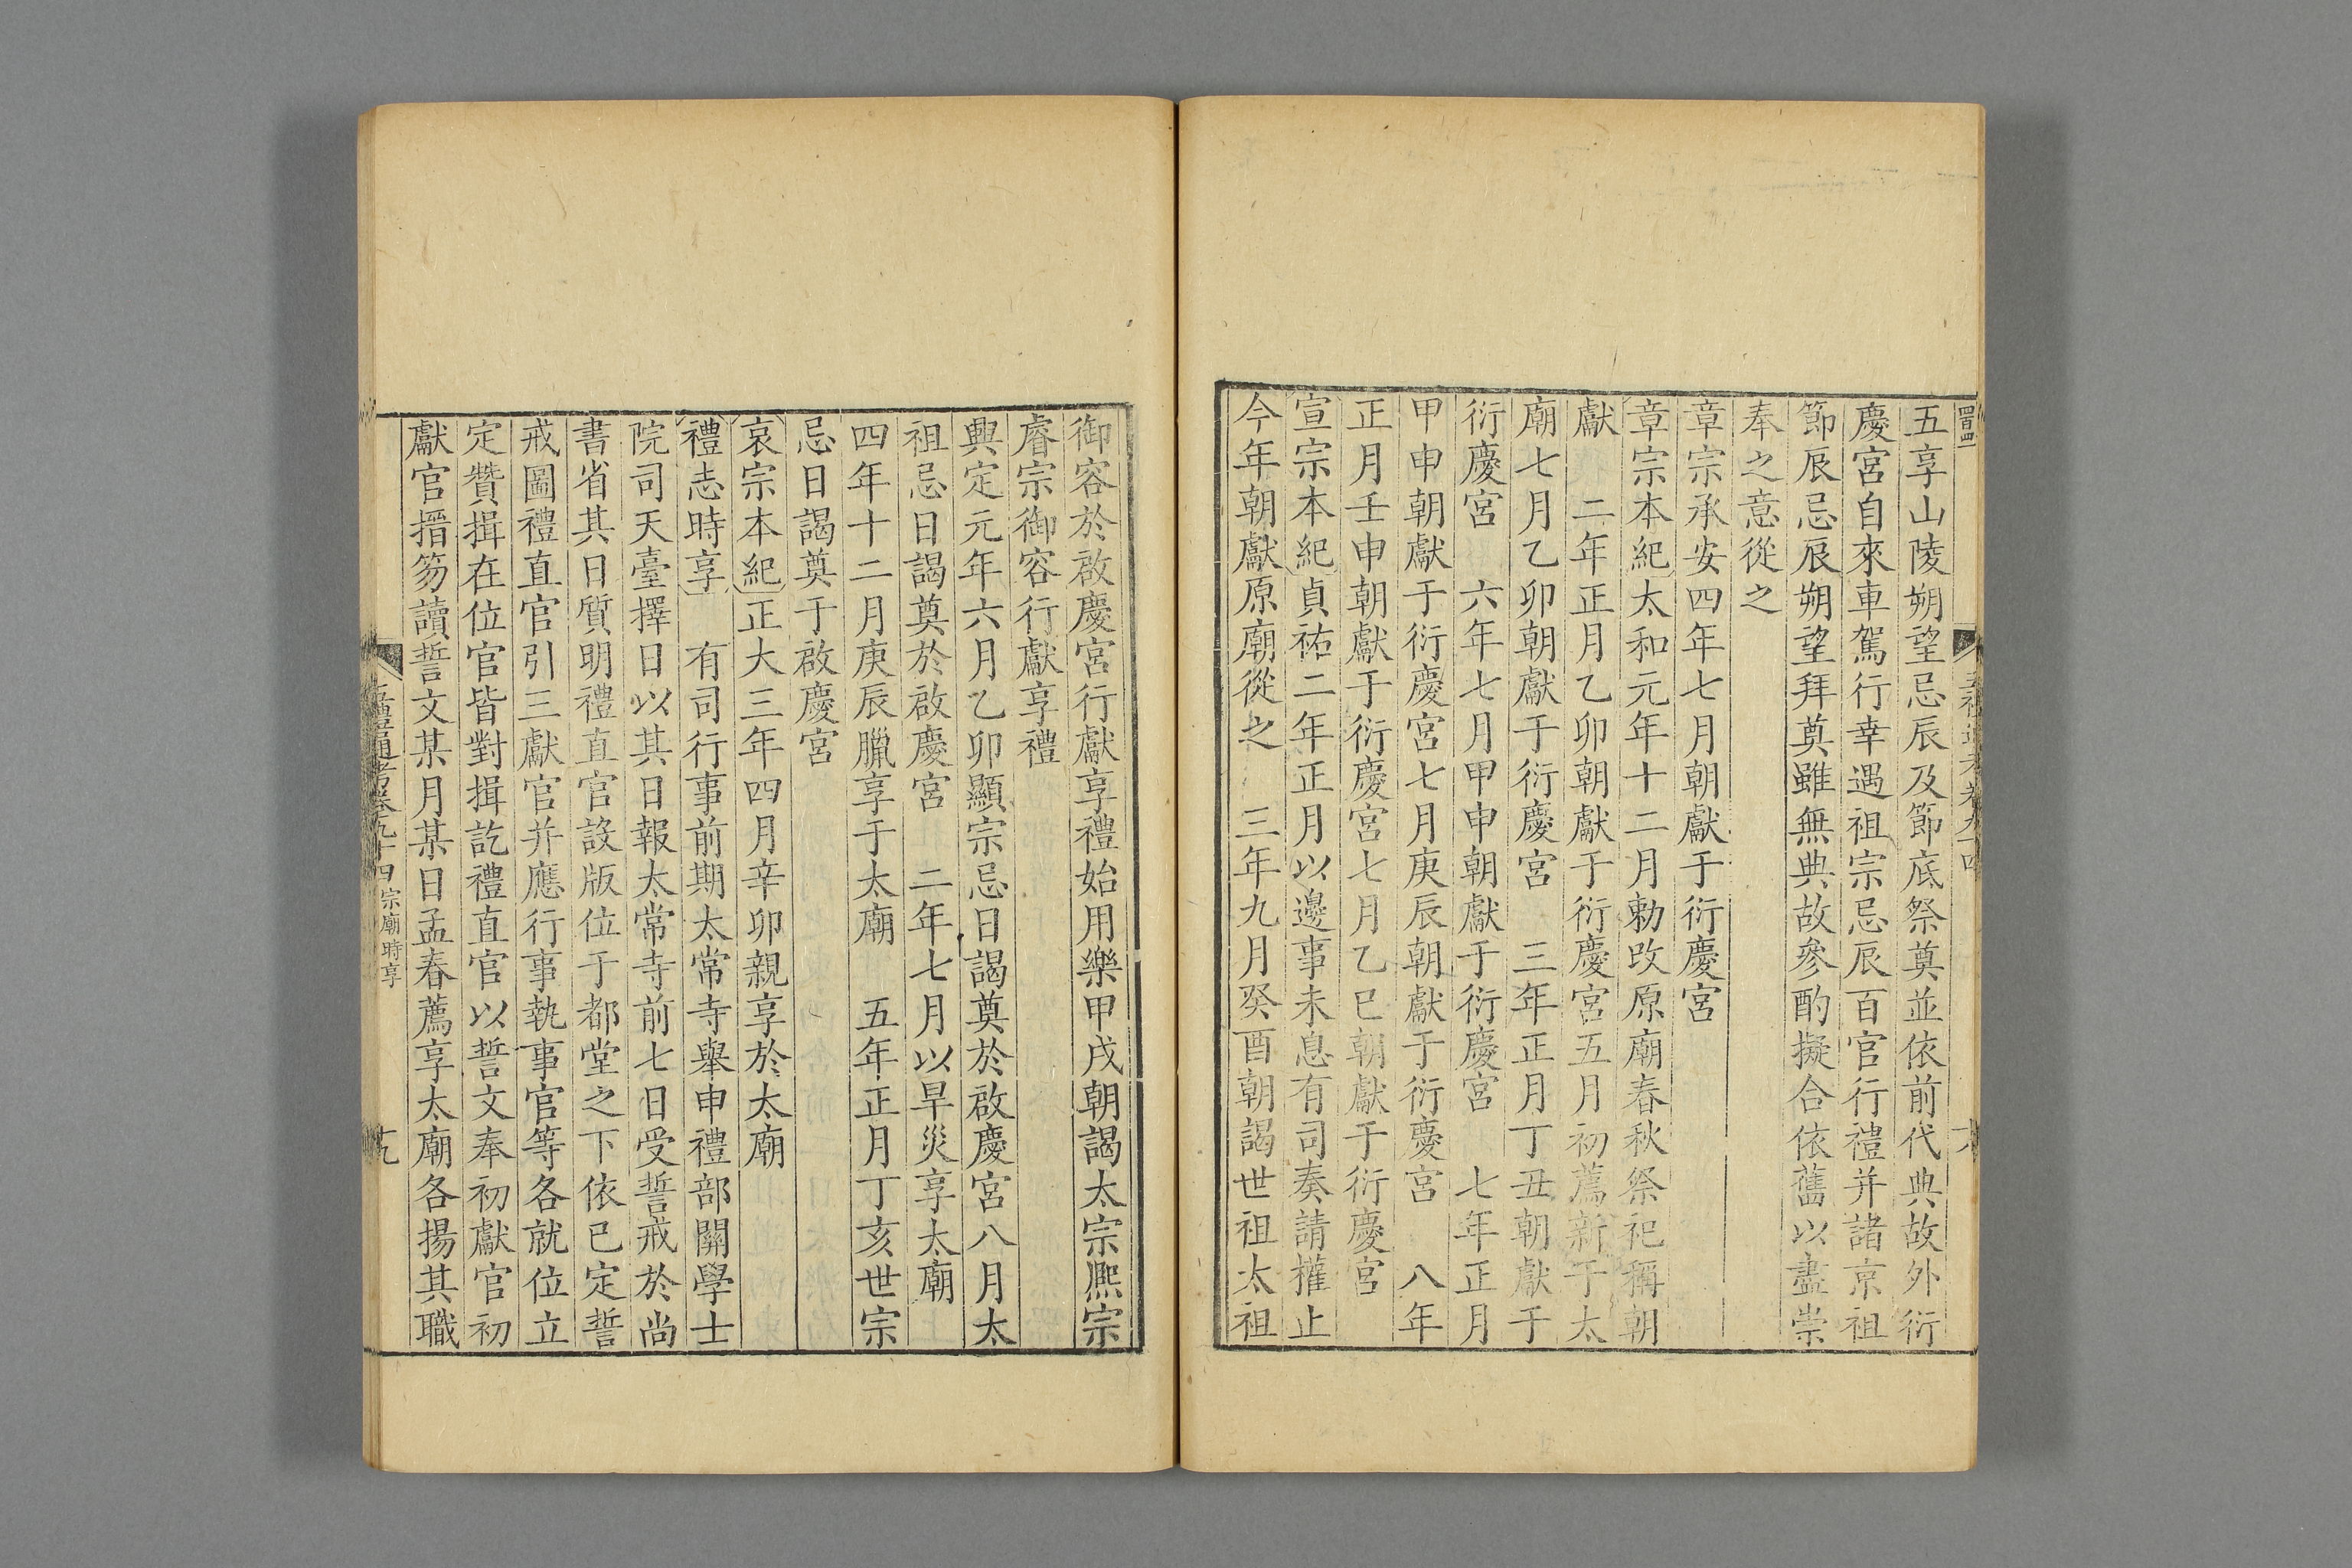 五享山陵朔望忌辰及節底祭奠並依前代典故外衍
慶宮自來車駕行幸遇祖宗忌辰百官行禮并諸京祖
節辰忌辰朔望拜奠雖無典故參酌擬合依舊以盡崇
奉之意從之
章宗承安四年七月朝獻于衍慶宮
章宗本紀太和元年十二月勅改原廟春秋祭祀稱朝
獻　二年正月乙卯朝獻于衍慶宮五月初薦新于太
廟七月乙卯朝獻于衍慶宮　三年正月丁丑朝獻于
衍慶宮　六年七月甲申朝獻于衍慶宮　七年正月
甲申朝獻于衍慶宮七月庚辰朝獻于衍慶宮　八年
正月壬申朝獻于衍慶宮七月乙巳朝獻于衍慶宮
宣宗本紀貞祐二年正月以邊事未息有司奏請權止
今年朝獻原廟從之　三年九月癸酉朝謁世祖太祖
御容於啟慶宮行獻享禮始用樂甲戌朝謁太宗熈宗
睿宗御容行獻享禮
興定元年六月乙卯顯宗忌日謁奠於啟慶宮八月太
祖忌日謁奠於啟慶宮　二年七月以旱災享太廟
四年十二月庚辰臘享于太廟　五年正月丁亥世宗
忌日謁奠于啟慶宮
哀宗本紀正大三年四月辛卯親享於太廟
禮志時享　有司行事前期太常寺舉申禮部關學士
院司天臺擇日以其日報太常寺前七日受誓戒於尚
書省其日質明禮直官設版位于都堂之下依已定誓
戒圖禮直官引三獻官并應行事執事官等各就位立
定贊揖在位官皆對揖訖禮直官以誓文奉初獻官初
獻官搢笏讀誓文某月某日孟春薦享太廟各揚其職
五禮通考卷九十四 宗廟時享